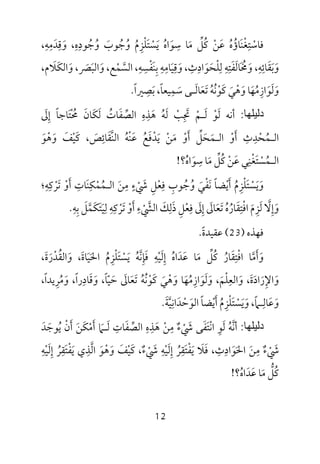 فاسْتِغْنَاؤُهُ عَنْ كُلِّ مَا سِوَاهُ يَسْتَلْزِمُ وُجُوبَ وُجُودِهِ، وَقِدَمِهِ،
وَبَقَائِهِ، وَمُخَالَفَتِهِ لِلْحَوَادِثِ، وَقِيَامِهِ بِنَفْسِهِ، والسَّمْعِ، والبَصَرِ، والكَلَامِ،
وَلَوَازِمُهَا وَهْيَ كَوْنُهُ تَعَالَـى سَمِيعاً، بَصِيراً.
دليلها: أنه لَوْ لَـمْ تَجِبْ لَهُ هَذِهِ الصِّفَاتُ لَكَانَ مُحْتَاجاً إِلَى
الـمُحْدِثِ أَوْ الـمَحَلِّ أَوْ مَنْ يَدْفَعُ عَنْهُ النَّقَائِصَ، كَيْفَ وَهْوَ
الـمُسْتَغْنِي عَنْ كُلِّ مَا سِوَاهُ؟!
وَيَسْتَلْزِمُ أَيْضاً نَفْيَ وُجُوبِ فِعْلِ شَيْءٍ مِنَ الـمُمْكِنَاتِ أَوْ تَرْكِهِ؛
وَإِلَّا لَزِمَ افْتِقَارُهُ تَعَالَى إِلَى فِعْلِ ذَلِكَ الشَّيْءِ أَوْ تَرْكِهِ لِيَتَكَمَّلَ بِهِ.
فهذه (23) عقيدةً.
وَأَمَّا افْتِقَارُ كُلِّ مَا عَدَاهُ إِلَيْهِ فَإِنَّهُ يَسْتَلْزِمُ الحَيَاةَ، وَالقُدْرَةَ،
وَالإِرَادَةَ، وَالعِلْمَ، وَلَوَازِمَهَا وَهْيَ كَوْنُهُ تَعَالَى حَيّاً، وَقَادِراً، وَمُرِيداً،
وَعَالِـماً، وَيَسْتَلْزِمُ أَيْضاً الوَحْدَانِيَّةَ.
دليلها: أَنَّهُ لَوِ انْتَفَى شَيْءٌ مِنْ هَذِهِ الصِّفَاتِ لَـمَا أَمْكَنَ أَنْ يُوجَدَ
شَيْءٌ مِنَ الحَوَادِثِ، فَلَا يَفْتَقِرُ إِلَيْهِ شَيْءٌ، كَيْفَ وَهْوَ الَّذِي يَفْتَقِرُ إِلَيْهِ
كُلُّ مَا عَدَاهُ؟!
12